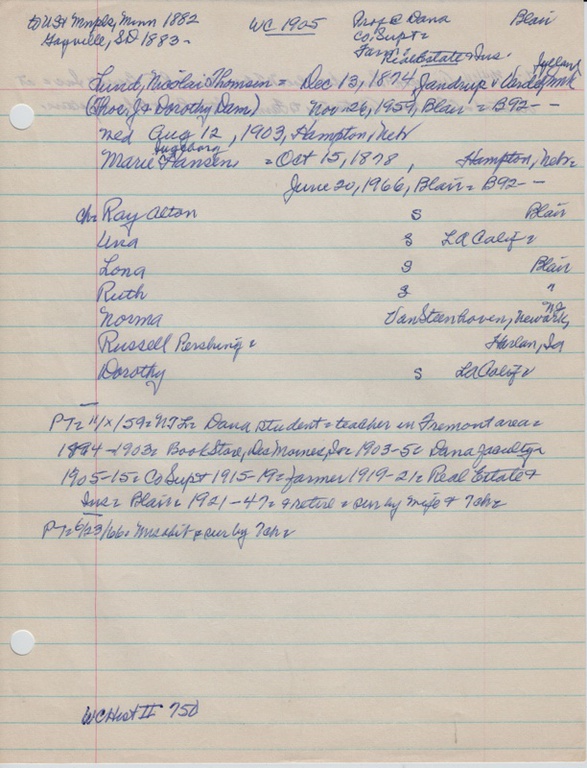 to US= Mnpls, Minn 1882 WC 1905 Prof @ Dana Blair
Gayville, SD 1883- Co Supt=
Farm=
Real Estate & Ins.
Lund, Nicolai Thomsen = Dec 13, 1874, Jandrup v Varde, Jylland Dmk
(Thos. J & Dorothy Dam) Nov 26, 1959, Blair = B92--
med Aug 12, 1903, Hampton, Neb
Marie Ingeborg Hansen = Oct 15, 1878, Hampton, Neb=
June 20, 1966, Blair = B92--
ch= Ray Alton S Blair
Una S LA Calif=
Lona S Blair
Ruth S "
Norma VanSteenhoven, Newark, NJ
Russell Pershing = Harlan, Ia
Dorothy S LA Calif=
PT= 11/x/59= NTL= Dana student= teacher in Fremont area=
1894-1903= Book Store, Des Moines, Ia= 1903-5= Dana faculty=
1905-15= Co Supt 1915-19= farmer 1919-21= Real Estate &
Ins= Blair= 1921-47= & retire= sur by wife & 7ch=
PT= 6/23/66= Mrs obit & sur by 7ch=
WC Hist II 750